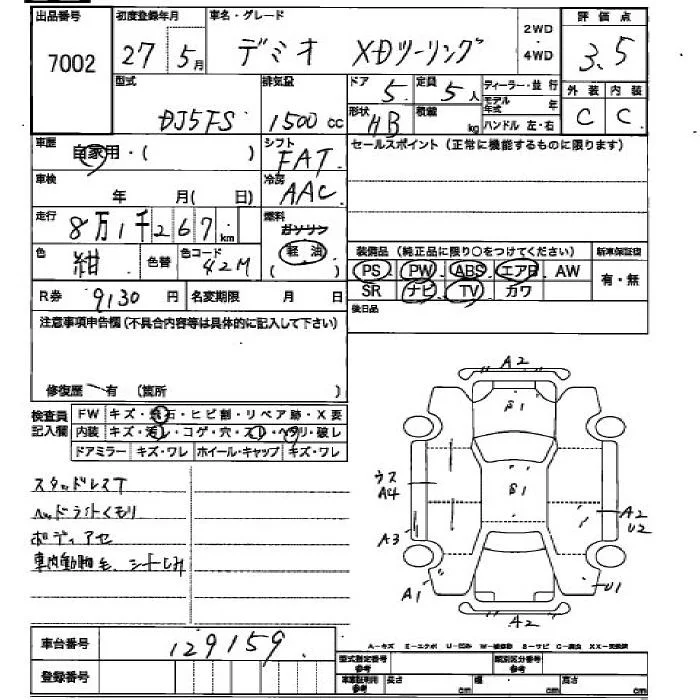 出品番号 初度登録年月 車名・グレード 2WD・4WD 評価点
7002 27年 5月 デミオ XDツーリング 3.5
型式 排気量 ドア 5 定員 5人 ディーラー・並行 外装 内装
DJ5FS 1500cc 形状 HB 積載 kg モデル年式 年 C C
ハンドル 左・右
車歴 自家用・( ) シフト FAT セールスポイント(正常に機能するものに限ります)
車検 年 月( 日) 冷房 AAC
走行 8万1千267km 燃料 ガソリン
軽油 ( )
色 紺 色替 色コード 42M 装備品(純正品に限り○をつけてください) 新車保証書
PS PW ABS エアB AW 有・無
R券 9130円 名変期限 月 日 SR ナビ TV カワ
注意事項申告欄(不具合内容等は具体的に記入して下さい) 後日品
修復歴 有 (箇所 )
検査員記入欄 FW キズ・飛石・ヒビ割・リペア跡・X要
内装 キズ・汚レ・コゲ・穴・スレ・ヘタリ・破レ
ドアミラー キズ・ワレ ホイール・キャップ キズ・ワレ
スタッドレスT
ヘッドライトくもり
ボディアセ
車内動物毛、シートしみ
A2
S1
ウス
A4 S1
A2
A3 U2
A1 U1
A2
車台番号 129159
登録番号
A-キズ E-エクボ U-凹み W-補修跡 S-サビ C-腐食 XX-交換済
型式指定番号 参考 類別区分番号 参考
車庫証明用 参考 長さ cm 幅 cm 高さ cm